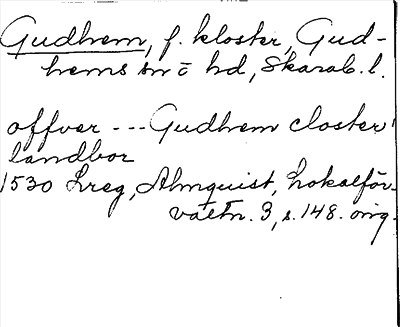 Gudhem, f. kloster, Gud-
hems sn o hd, Skarab. l.
offver --- Gudhem closter
landbor
1530 Lreg, Almquist, Lokalför-
valtn. 3, s. 148. orig.